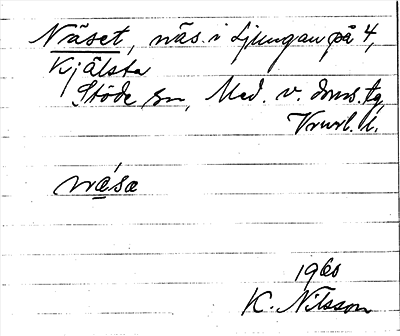 Näset, näs i Ljungan på 4,
Kjälsta
Stöde sn, Med. v. doms. tg
Vrurl. U.
näsa
1960
K. Nilsson